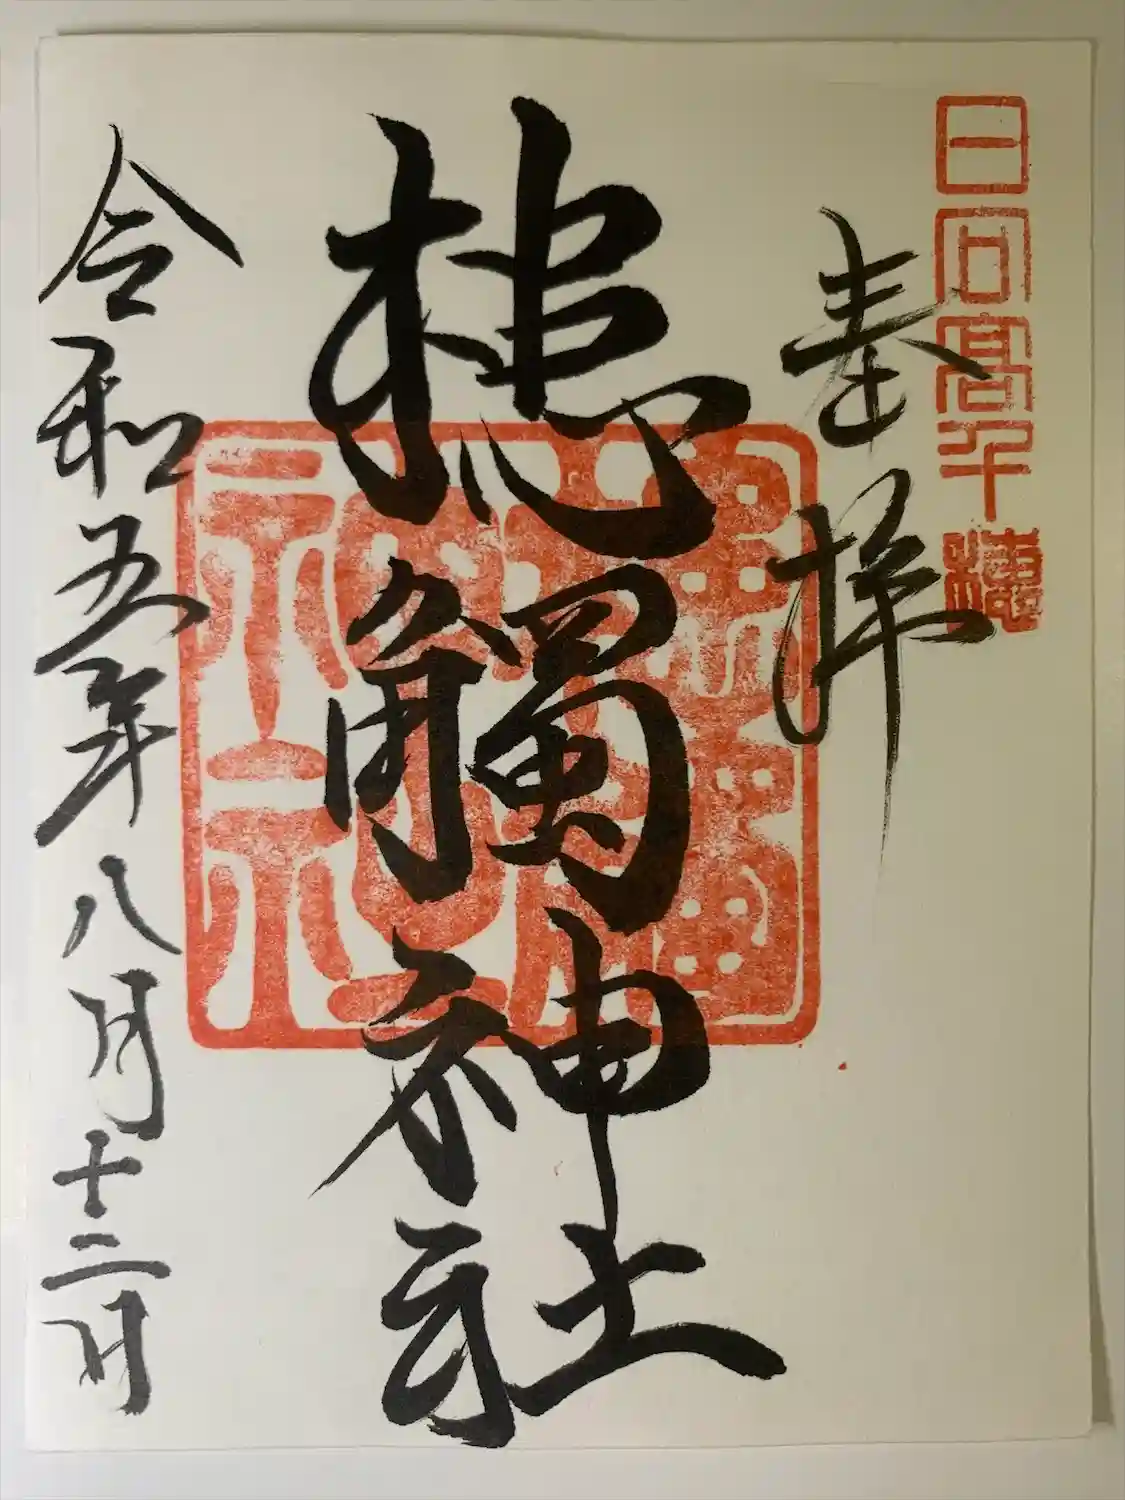 日向髙千穂
奉拝
槵觸神社
令和五年八月十二日